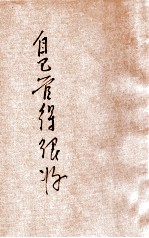 自己管得很好